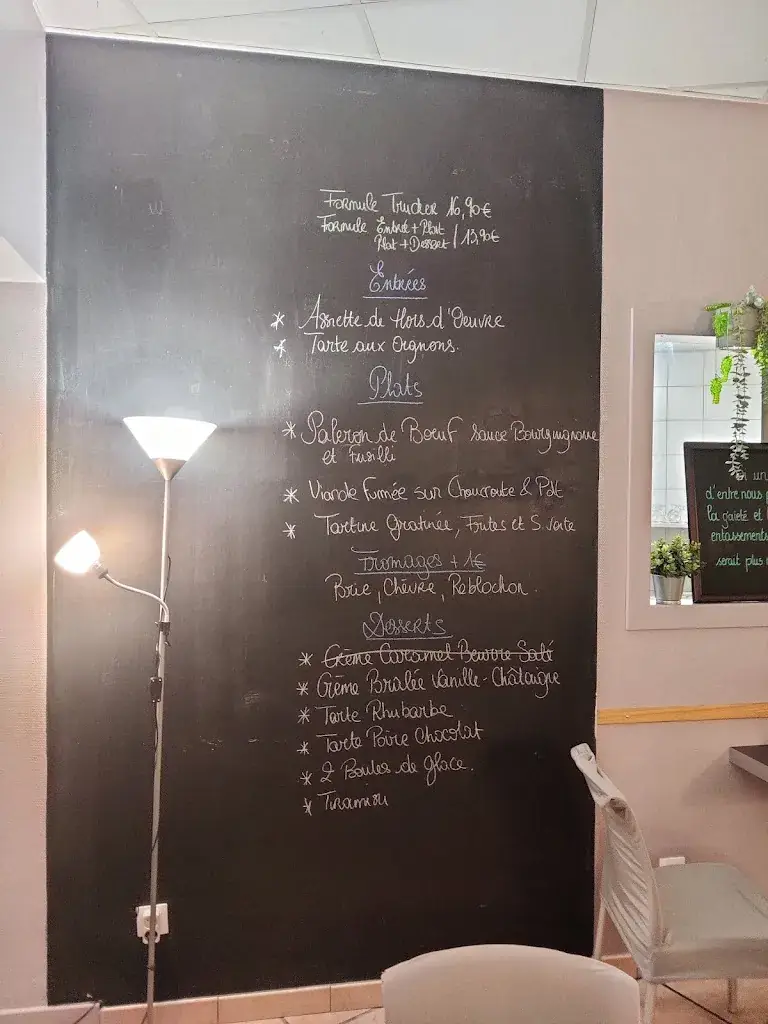 Formule Trucker 16,90€
Formule Entrée + Plat
Plat + Dessert / 13,90€
Entrées
* Assiette de Hors d'Oeuvre
* Tarte aux Oignons.
Plats
* Paleron de Boeuf sauce Bourguignonne
et Fusilli
* Viande Fumée sur Choucroute & Pdt
* Tartine Gratinée, Frites et S. verte
Fromages + 1€
Brie, Chèvre, Reblochon.
Desserts
* Crème Caramel Beurre Salé
* Crème Brulée Vanille - Châtaigne
* Tarte Rhubarbe
* Tarte Poire Chocolat
* 2 Boules de glace.
* Tiramisu
un
d'entre nous
la gaieté et
entassements
serait plus